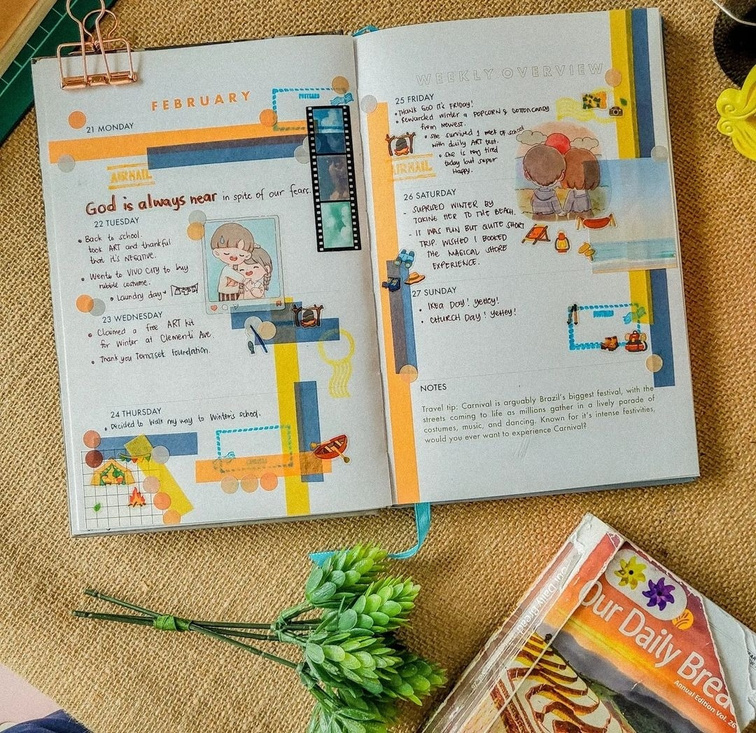 FEBRUARY
21 MONDAY
AIRMAIL
God is always near in spite of our fears.
22 TUESDAY
Back to school
took ART and thankful
that it's NEGATIVE.
Wento to VIVO CITY to buy
cookie.
Laundry day
23 WEDNESDAY
Claimed a free ART kit
for Winter at Clementi Ave
Thank you Temasek Foundation.
24 THURSDAY
Decided to walk my way to Winter's school.
POSTCARD
WEEKLY OVERVIEW
25 FRIDAY
THANK GOD IT'S FRIDAY!
Rewarded Winter a POPCORN & COTTON CANDY
from
She survived 1 met of school
with daily ART test.
She is may tired
today but super
Happy.
AIRMAIL
26 SATURDAY
- SUPRIZED WINTER BY
TAKING HER TO THE BEACH.
- IT WAS FUN BUT QUITE SHORT
TRIP WISHED I BOOKED
THE MAGICAL SHORE
EXPERIENCE.
27 SUNDAY
IKEA DAY! YEHEY!
CHURCH DAY! YEHEY!
POSTCARD
NOTES
Travel tip: Carnival is arguably Brazil's biggest festival, with the
streets coming to life as millions gather in a lively parade of
costumes, music, and dancing. Known for it's intense festivities,
would you ever want to experience Carnival?
Our Daily Bread
Our Daily Brea
Annual Edition Vol. 26